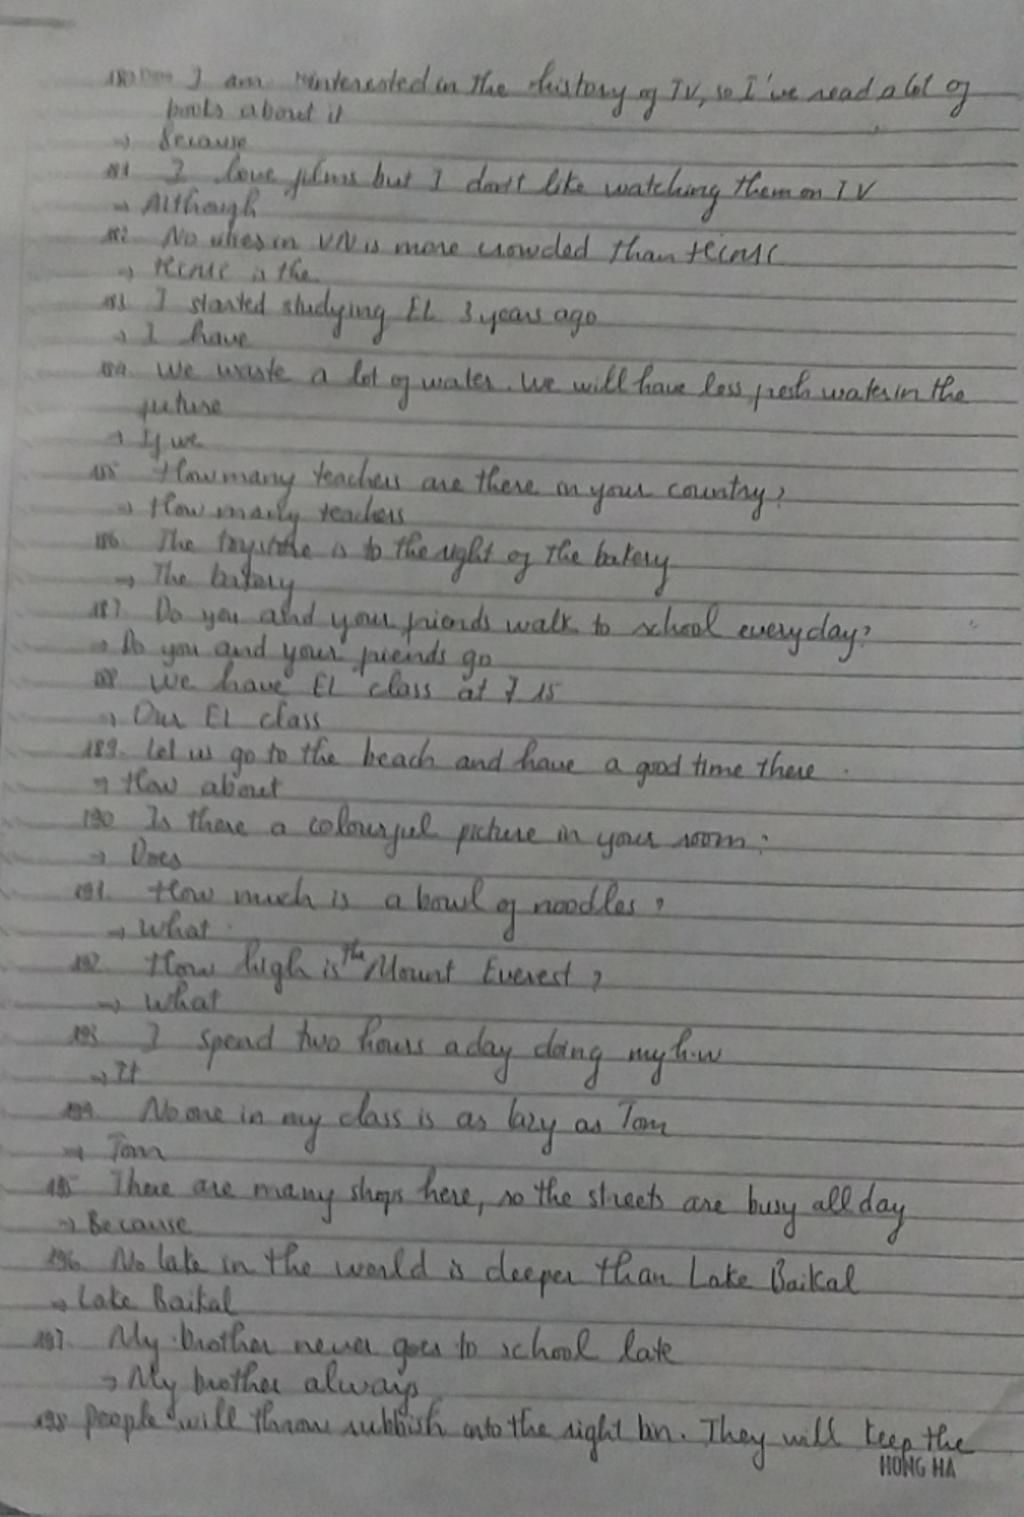 I am interested in the history of TV, so I've read a lot of
books about it
→ Because
181 I love films but I don't like watching them on TV
→ Although
182. No cities in VN is more crowded than HCMC
→ HCMC is the
183 I started studying EL 3 years ago
→ I have
184. We waste a lot of water. We will have less fresh water in the
future
→ If we
185 How many teachers are there in your country?
→ How many teachers
186. The toystore is to the right of the bakery
→ The bakery
187. Do you and your friends walk to school everyday?
→ Do you and your friends go
188 We have EL class at 7 15
→ Our EL class
189. Let us go to the beach and have a good time there.
→ How about
190 Is there a colourful picture in your room?
→ Does
191. How much is a bowl of noodles?
→ What
192 How high is the Mount Everest?
→ What
193 I spend two hours a day doing my h.w
→ It
194. No one in my class is as lazy as Tom
→ Tom
195 There are many shops here, so the streets are busy all day
→ Because
196. No lake in the world is deeper than Lake Baikal
→ Lake Baikal
197. My brother never goes to school late
→ My brother always
198 People will throw rubbish into the right bin. They will keep the
HONG HA